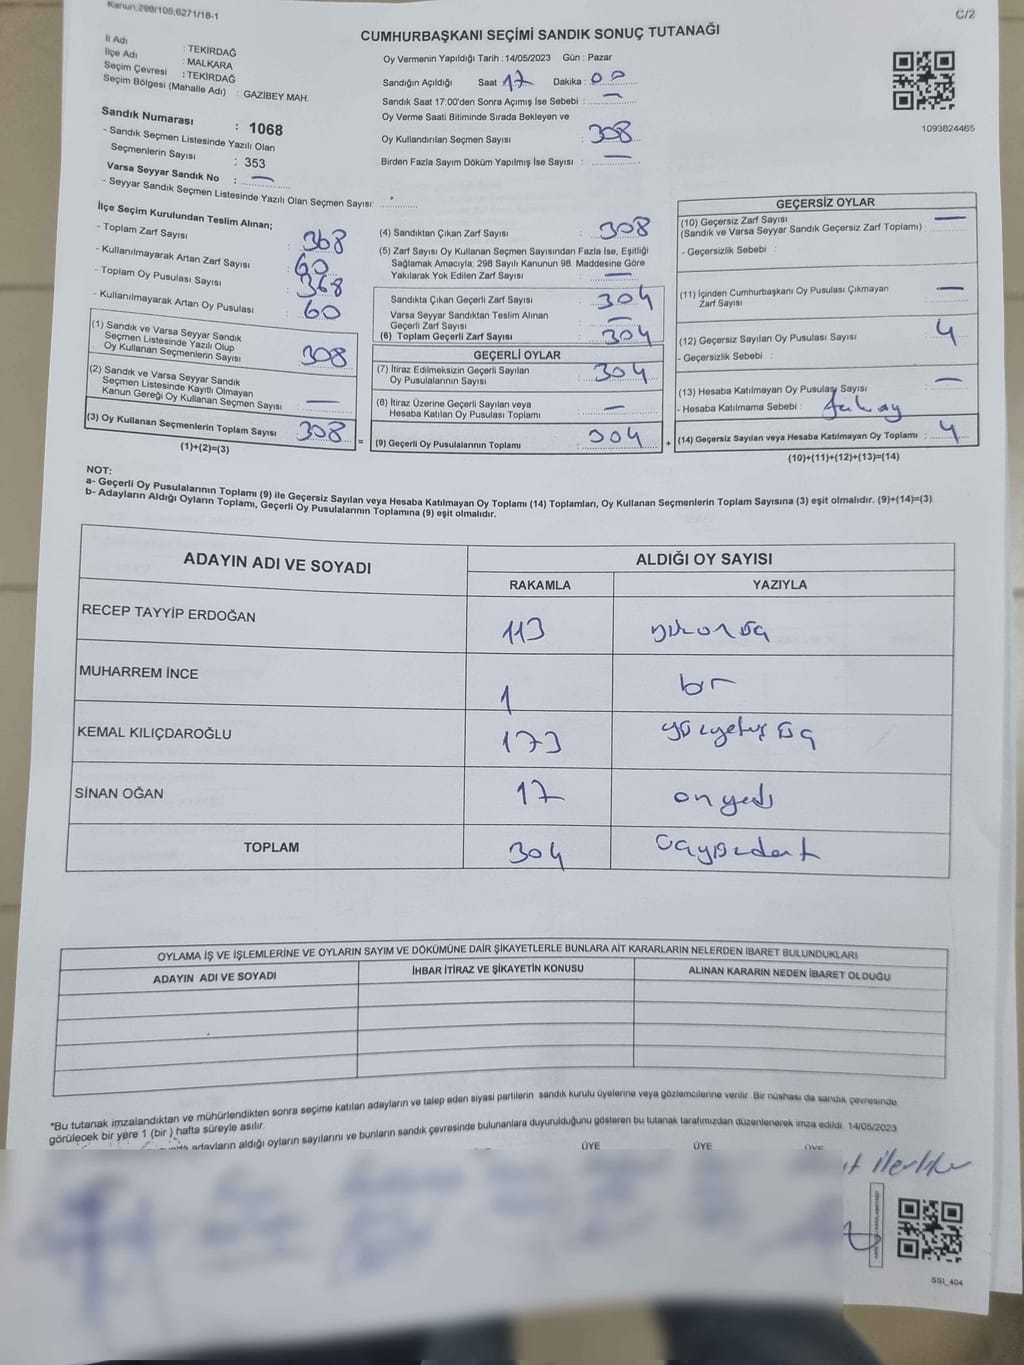 Kanun:298/105,6271/16-1
C/2
CUMHURBAŞKANI SEÇİMİ SANDIK SONUÇ TUTANAĞI
İl Adı : TEKİRDAĞ
İlçe Adı : MALKARA
Seçim Çevresi : TEKİRDAĞ
Seçim Bölgesi (Mahalle Adı) : GAZİBEY MAH.
Oy Vermenin Yapıldığı Tarih : 14/05/2023 Gün : Pazar
Sandığın Açıldığı Saat 17 Dakika : 00
Sandık Saat 17:00'den Sonra Açımış İse Sebebi : —
Oy Verme Saati Bitiminde Sırada Bekleyen ve
Oy Kullandırılan Seçmen Sayısı : 308
Birden Fazla Sayım Döküm Yapılmış İse Sayısı : —
1093824465
Sandık Numarası : 1068
- Sandık Seçmen Listesinde Yazılı Olan
Seçmenlerin Sayısı : 353
Varsa Seyyar Sandık No : —
- Seyyar Sandık Seçmen Listesinde Yazılı Olan Seçmen Sayısı:
İlçe Seçim Kurulundan Teslim Alınan;
- Toplam Zarf Sayısı : 368
- Kullanılmayarak Artan Zarf Sayısı : 60
- Toplam Oy Pusulası Sayısı : 368
- Kullanılmayarak Artan Oy Pusulası : 60
(1) Sandık ve Varsa Seyyar Sandık
Seçmen Listesinde Yazılı Olup
Oy Kullanan Seçmenlerin Sayısı : 308
(2) Sandık ve Varsa Seyyar Sandık
Seçmen Listesinde Kayıtlı Olmayan
Kanun Gereği Oy Kullanan Seçmen Sayısı : —
(3) Oy Kullanan Seçmenlerin Toplam Sayısı 308
(1)+(2)=(3)
(4) Sandıktan Çıkan Zarf Sayısı : 308
(5) Zarf Sayısı Oy Kullanan Seçmen Sayısından Fazla İse, Eşitliği
Sağlamak Amacıyla; 298 Sayılı Kanunun 98. Maddesine Göre
Yakılarak Yok Edilen Zarf Sayısı : —
Sandıkta Çıkan Geçerli Zarf Sayısı : 304
Varsa Seyyar Sandıktan Teslim Alınan
Geçerli Zarf Sayısı : —
(6) Toplam Geçerli Zarf Sayısı : 304
GEÇERLİ OYLAR
(7) İtiraz Edilmeksizin Geçerli Sayılan
Oy Pusulalarının Sayısı : 304
(8) İtiraz Üzerine Geçerli Sayılan veya
Hesaba Katılan Oy Pusulası Toplamı : —
= (9) Geçerli Oy Pusulalarının Toplamı : 304 +
GEÇERSİZ OYLAR
(10) Geçersiz Zarf Sayısı
(Sandık ve Varsa Seyyar Sandık Geçersiz Zarf Toplamı) : —
- Geçersizlik Sebebi :
(11) İçinden Cumhurbaşkanı Oy Pusulası Çıkmayan
Zarf Sayısı : —
(12) Geçersiz Sayılan Oy Pusulası Sayısı : 4
- Geçersizlik Sebebi :
(13) Hesaba Katılmayan Oy Pusulası Sayısı : —
- Hesaba Katılmama Sebebi :
(14) Geçersiz Sayılan veya Hesaba Katılmayan Oy Toplamı : 4
(10)+(11)+(12)+(13)=(14)
NOT:
a- Geçerli Oy Pusulalarının Toplamı (9) ile Geçersiz Sayılan veya Hesaba Katılmayan Oy Toplamı (14) Toplamları, Oy Kullanan Seçmenlerin Toplam Sayısına (3) eşit olmalıdır. (9)+(14)=(3)
b- Adayların Aldığı Oyların Toplamı, Geçerli Oy Pusulalarının Toplamına (9) eşit olmalıdır.
ADAYIN ADI VE SOYADI
ALDIĞI OY SAYISI
RAKAMLA YAZIYLA
RECEP TAYYİP ERDOĞAN 113
MUHARREM İNCE 1 bir
KEMAL KILIÇDAROĞLU 173 yüzyetmiş üç
SİNAN OĞAN 17 onyedi
TOPLAM 304 üçyüzdört
OYLAMA İŞ VE İŞLEMLERİNE VE OYLARIN SAYIM VE DÖKÜMÜNE DAİR ŞİKAYETLERLE BUNLARA AİT KARARLARIN NELERDEN İBARET BULUNDUKLARI
ADAYIN ADI VE SOYADI İHBAR İTİRAZ VE ŞİKAYETİN KONUSU ALINAN KARARIN NEDEN İBARET OLDUĞU
*Bu tutanak imzalandıktan ve mühürlendikten sonra seçime katılan adayların ve talep eden siyasi partilerin sandık kurulu üyelerine veya gözlemcilerine verilir. Bir nüshası da sandık çevresinde
görülecek bir yere 1 (bir) hafta süreyle asılır.
adayların aldığı oyların sayılarını ve bunların sandık çevresinde bulunanlara duyurulduğunu gösteren bu tutanak tarafımızdan düzenlenerek imza edildi. 14/05/2023
ÜYE ÜYE ÜYE
SSI_404